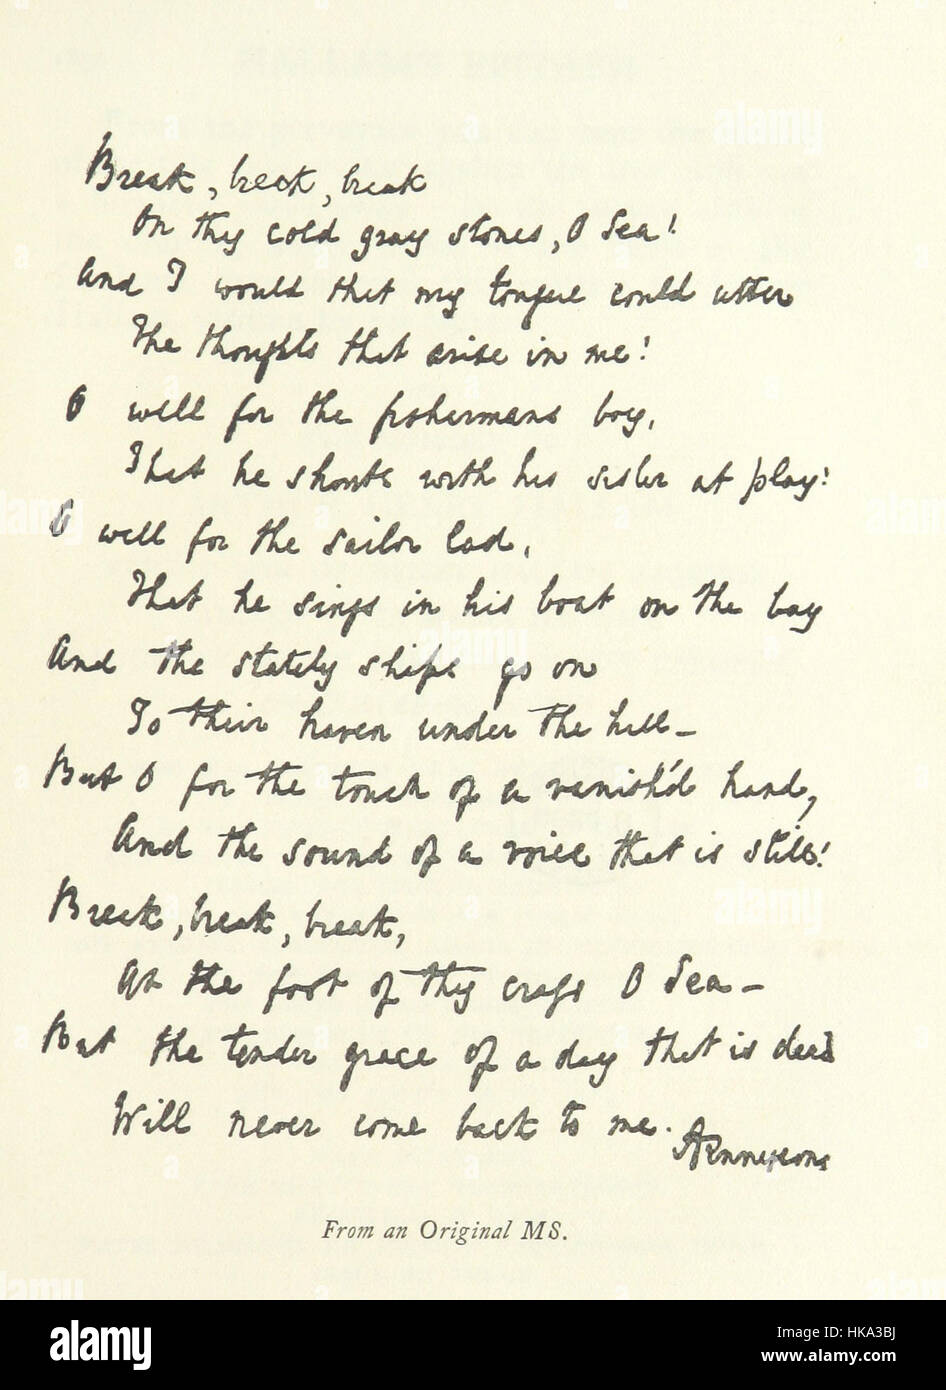 Break, break, break
On thy cold gray stones, O Sea!
And I would that my tongue could utter
The thoughts that arise in me!
O well for the fishermans boy,
That he shouts with his sister at play!
O well for the sailor lad,
That he sings in his boat on the bay
And the stately ships go on
To their haven under the hill—
But O for the touch of a vanish'd hand,
And the sound of a voice that is still!
Break, break, break,
At the foot of thy crags O Sea—
But the tender grace of a day that is dead
Will never come back to me.
ATennyson
From an Original MS.
alamy
Image ID: HKA3BJ
www.alamy.com